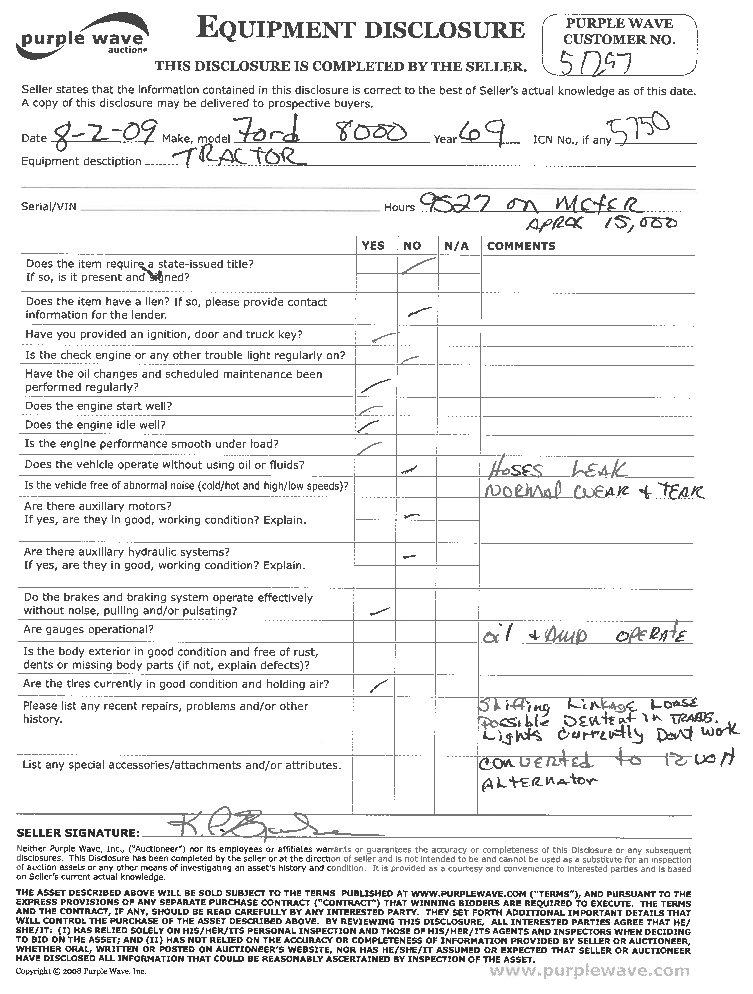 purple wave
auction®
EQUIPMENT DISCLOSURE
PURPLE WAVE
CUSTOMER NO.
THIS DISCLOSURE IS COMPLETED BY THE SELLER.
Seller states that the information contained in this disclosure is correct to the best of Seller's actual knowledge as of this date.
A copy of this disclosure may be delivered to prospective buyers.
Date 8-2-09 Make, model Ford 8000 Year 69 ICN No., if any 5750
Equipment description TRACTOR
Serial/VIN Hours 9527 on METER
APROX 15,000
YES NO N/A COMMENTS
Does the item require a state-issued title?
If so, is it present and signed?
Does the item have a lien? If so, please provide contact
information for the lender.
Have you provided an ignition, door and truck key?
Is the check engine or any other trouble light regularly on?
Have the oil changes and scheduled maintenance been
performed regularly?
Does the engine start well?
Does the engine idle well?
Is the engine performance smooth under load?
Does the vehicle operate without using oil or fluids? HOSES LEAK
Is the vehicle free of abnormal noise (cold/hot and high/low speeds)? NORMAL WEAR + TEAR
Are there auxiliary motors?
If yes, are they in good, working condition? Explain.
Are there auxiliary hydraulic systems?
If yes, are they in good, working condition? Explain.
Do the brakes and braking system operate effectively
without noise, pulling and/or pulsating?
Are gauges operational? oil + AMP OPERATE
Is the body exterior in good condition and free of rust,
dents or missing body parts (if not, explain defects)?
Are the tires currently in good condition and holding air?
Please list any recent repairs, problems and/or other Shifting Linkage Loose
history. Possible DENTENT IN TRANS.
Lights Currently Dont work
List any special accessories/attachments and/or attributes. CONVERTED to 12 VOLT
ALTERNATOR
SELLER SIGNATURE:
Neither Purple Wave, Inc., ("Auctioneer") nor its employees or affiliates warrants or guarantees the accuracy or completeness of this Disclosure or any subsequent
disclosures. This Disclosure has been completed by the seller or at the direction of seller and is not intended to be and cannot be used as a substitute for an inspection
of auction assets or any other means of investigating an asset's history and condition. It is provided as a courtesy and convenience to interested parties and is based
on Seller's current actual knowledge.
THE ASSET DESCRIBED ABOVE WILL BE SOLD SUBJECT TO THE TERMS PUBLISHED AT WWW.PURPLEWAVE.COM ("TERMS"), AND PURSUANT TO THE
EXPRESS PROVISIONS OF ANY SEPARATE PURCHASE CONTRACT ("CONTRACT") THAT WINNING BIDDERS ARE REQUIRED TO EXECUTE. THE TERMS
AND THE CONTRACT, IF ANY, SHOULD BE READ CAREFULLY BY ANY INTERESTED PARTY. THEY SET FORTH ADDITIONAL IMPORTANT DETAILS THAT
WILL CONTROL THE PURCHASE OF THE ASSET DESCRIBED ABOVE. BY REVIEWING THIS DISCLOSURE, ALL INTERESTED PARTIES AGREE THAT HE/
SHE/IT: (I) HAS RELIED SOLELY ON HIS/HER/ITS PERSONAL INSPECTION AND THOSE OF HIS/HER/ITS AGENTS AND INSPECTORS WHEN DECIDING
TO BID ON THE ASSET; AND (II) HAS NOT RELIED ON THE ACCURACY OR COMPLETENESS OF INFORMATION PROVIDED BY SELLER OR AUCTIONEER,
WHETHER ORAL, WRITTEN OR POSTED ON AUCTIONEER'S WEBSITE, NOR HAS HE/SHE/IT ASSUMED OR EXPECTED THAT SELLER OR AUCTIONEER
HAVE DISCLOSED ALL INFORMATION THAT COULD BE REASONABLY ASCERTAINED BY INSPECTION OF THE ASSET.
Copyright © 2008 Purple Wave, Inc.
www.purplewave.com